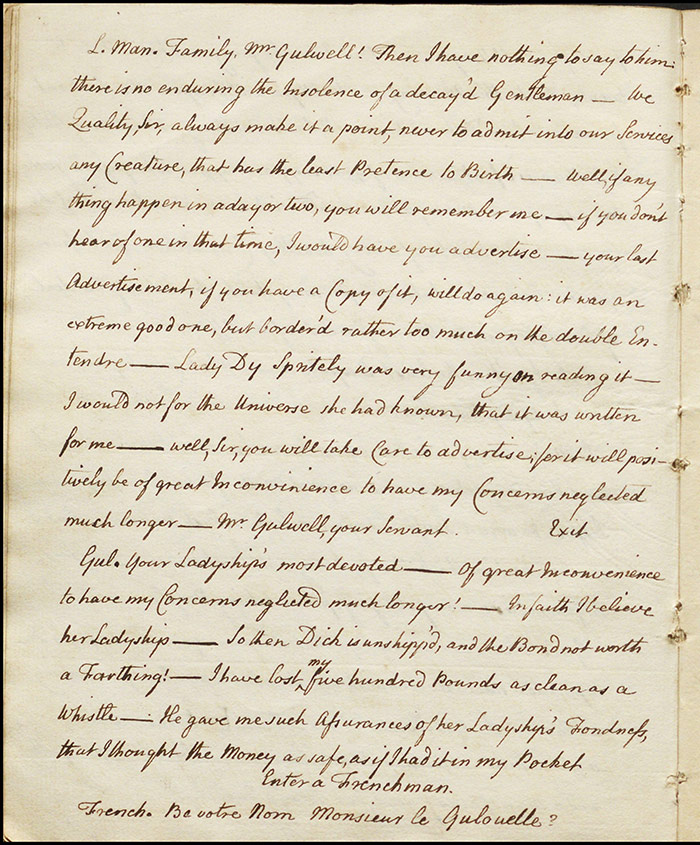 L. Man. Family, Mr Gulwell! Then I have nothing to say to him:
there is no enduring the Insolence of a decay'd Gentleman — We
Quality, Sir, always make it a point, never to admit into our Services
any Creature, that has the least Pretence to Birth — well, if any
thing happen in a day or two, you will remember me — if you don't
hear of one in that time, I would have you advertise — your last
Advertisement, if you have a Copy of it, will do again: it was an
extreme good one, but border'd rather too much on the double En-
tendre — Lady Dy Spritely was very funny on reading it —
I would not for the Universe she had known, that it was written
for me — well, Sir, you will take Care to advertise; for it will posi-
tively be of great Inconvinience to have my Concerns neglected
much longer — Mr Gulwell, your Servant. Exit
Gul. Your Ladyship's most devoted — Of great Inconvenience
to have my Concerns neglected much longer! — In faith I believe
her Ladyship — So then Dick is unshipp'd, and the Bond not worth
a Farthing! — I have lost my five hundred Pounds as clean as a
Whistle — He gave me such Assurances of her Ladyship's Fondness,
that I thought the Money as safe, as if I had it in my Pocket
Enter a Frenchman.
French. Be votre Nom Monsieur le Gulouelle?